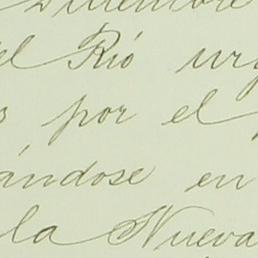 el Río
por el
ándose en
la Nueva